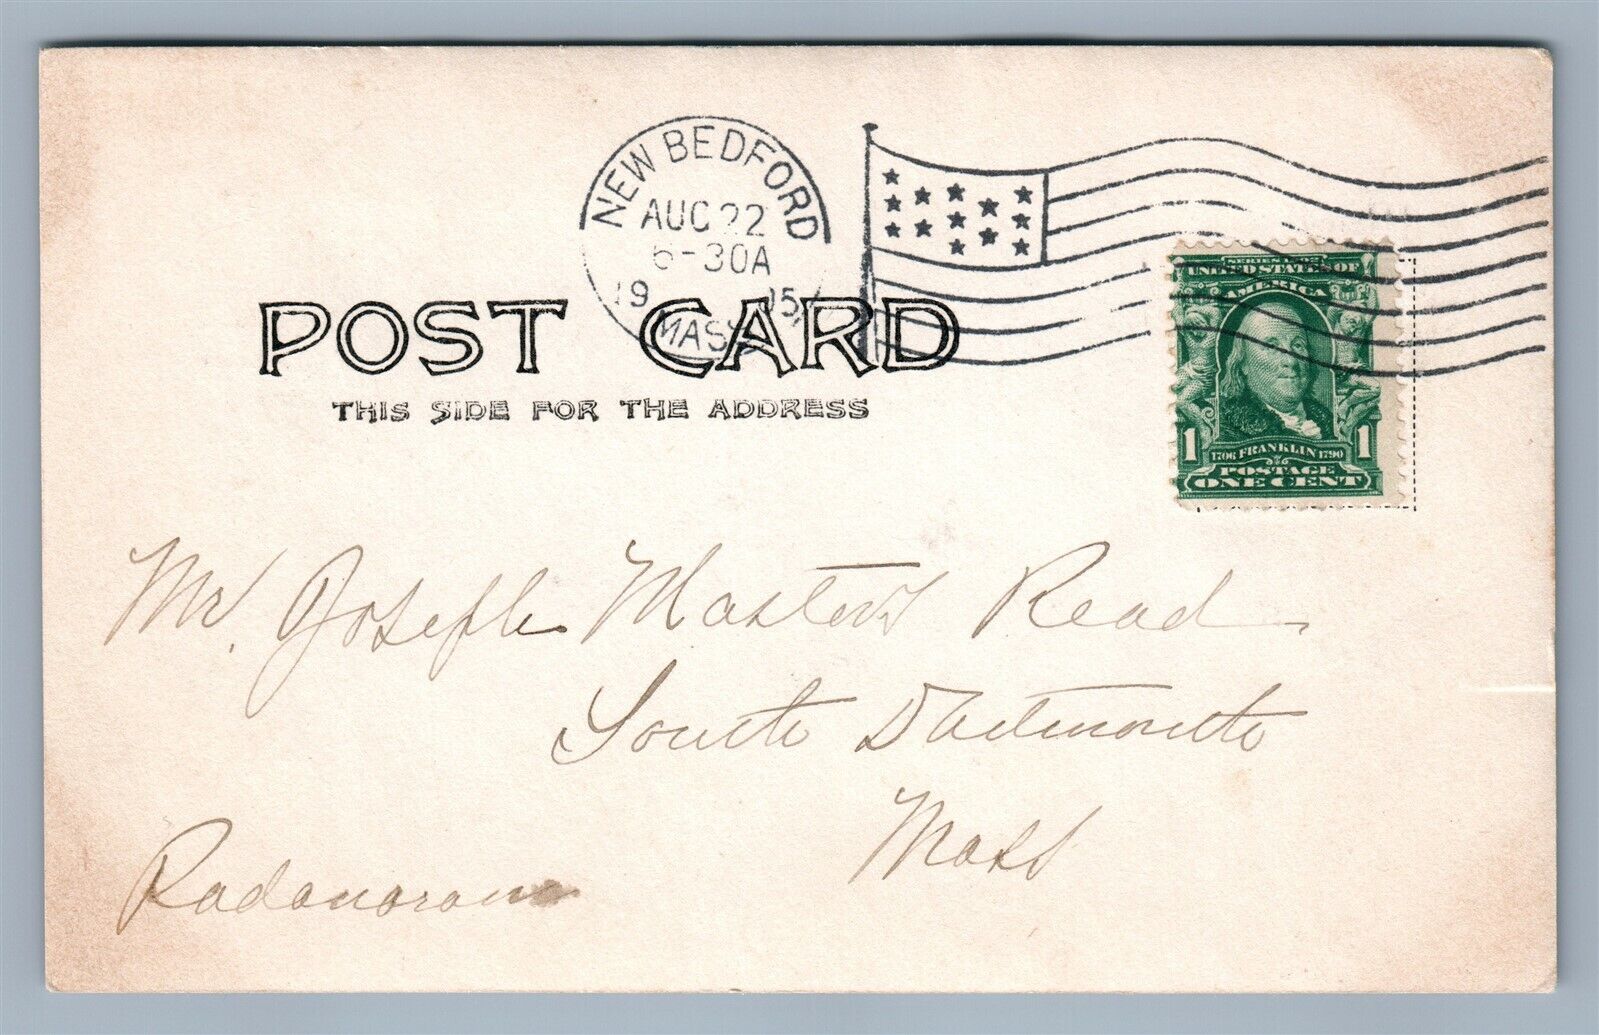 NEW BEDFORD
AUG 22
6-30A
19 05
MASS
POST CARD
THIS SIDE FOR THE ADDRESS
SERIES 1902
UNITED STATES OF
AMERICA
1 1
1706 FRANKLIN 1790
POSTAGE
ONE CENT
Mr. Joseph Masters Read
South Dartmouth
Mass